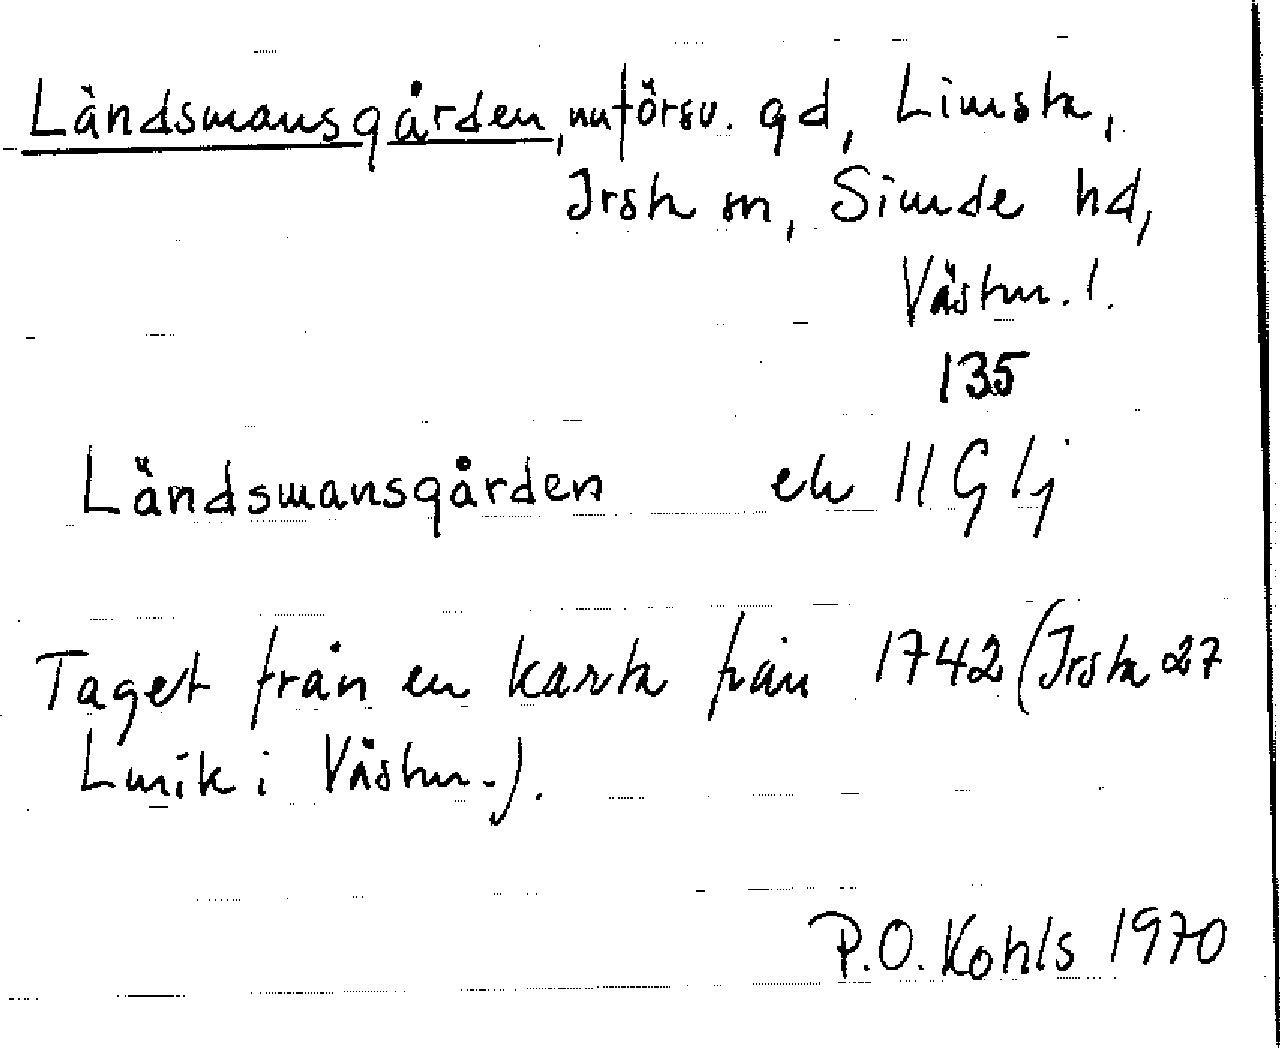 Ländsmansgården, nu försv. gd, Limsta,
Irsta sn, Siende hd,
Västm. l.
135
Ländsmansgården ek 11G 1j
Taget från en karta från 1742 (Irsta 27
Lmk i Västm.).
P.O. Kohls 1970